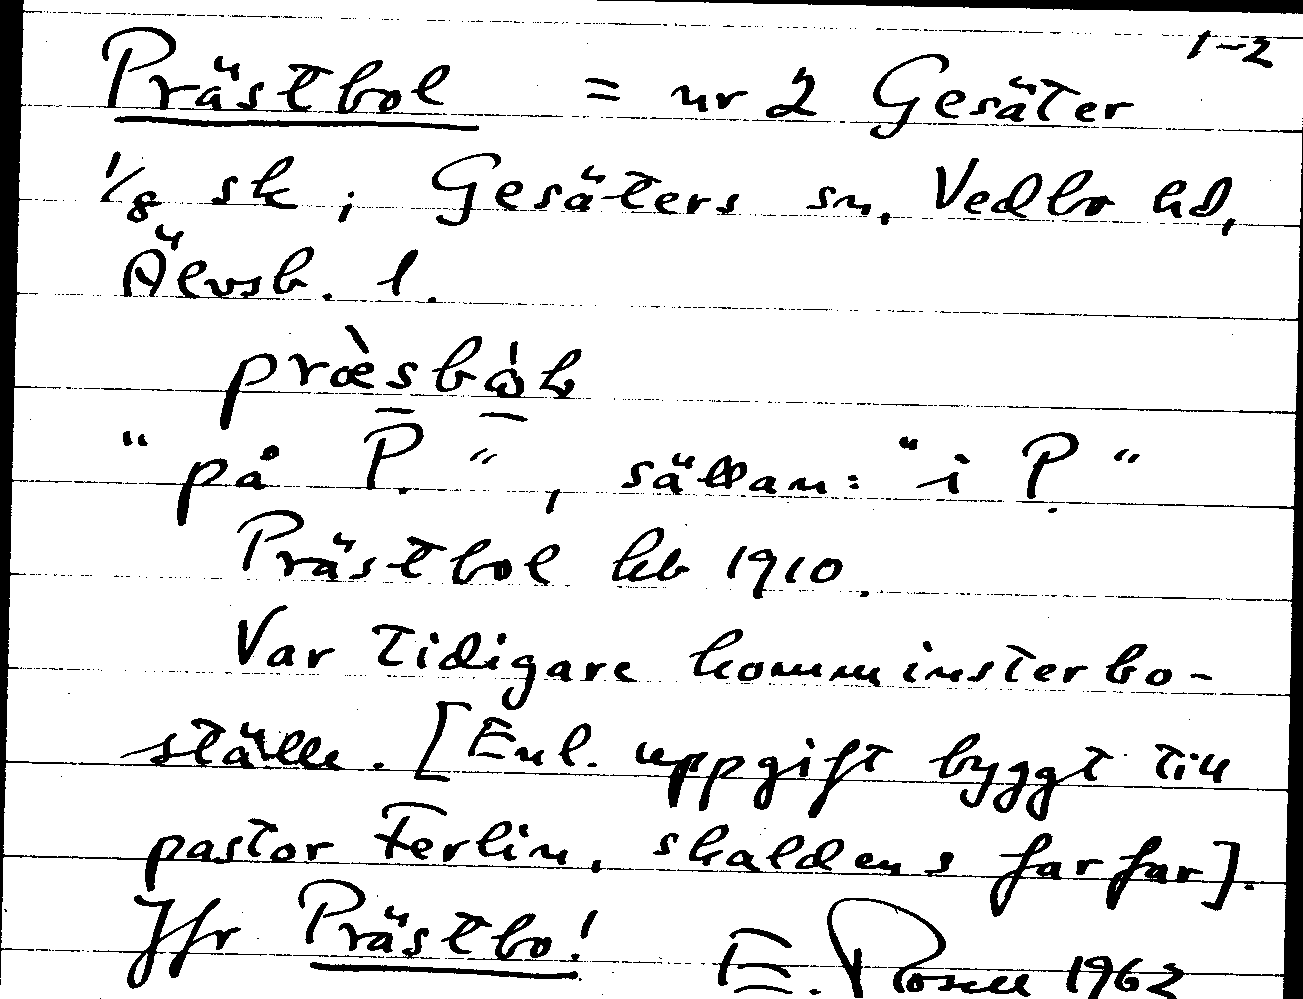 1-2
Prästbol = nr 2 Gesäter
1/8 sk; Gesäters sn, Vedbo hd,
Älvsb. l.
"på P.", sällan: "i P."
Prästbol kb 1910.
Var tidigare komminsterbo-
ställe. [Enl. uppgift byggt till
pastor Ferlin, skaldens farfar].
Jfr Prästbo! E. 1962